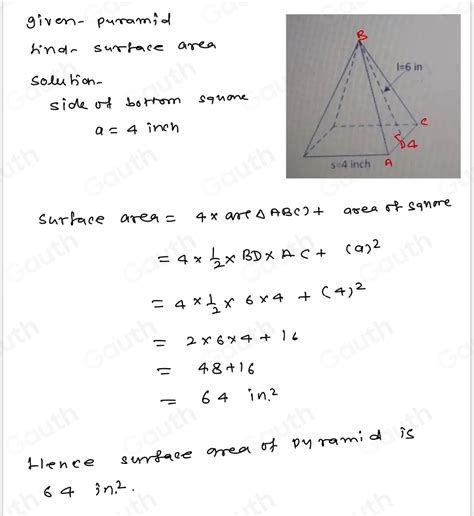 given- pyramid
find- surface area
solution-
side of bottom square
a = 4 inch
B
l=6 in
C
D 4
s=4 inch
A
Surface area = 4 x ar(ΔABC) + area of square
= 4 x 1/2 x BD x AC + (a)²
= 4 x 1/2 x 6 x 4 + (4)²
= 2 x 6 x 4 + 16
= 48 + 16
= 64 in.²
Hence surface area of pyramid is
64 in².